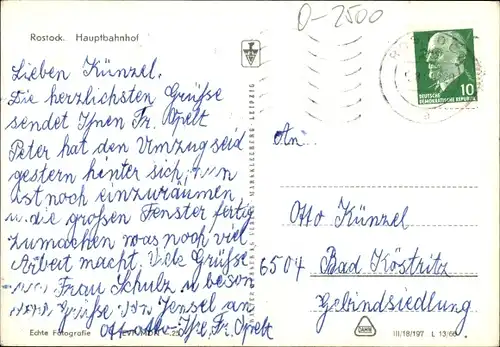 Rostock. Hauptbahnhof
D-2500
10
DEUTSCHE
DEMOKRATISCHE REPUBLIK
Lieben Künzel.
Die herzlichsten Grüße
sendet Ihnen Fr. Opelt
Peter hat den Umzug seid
gestern hinter sich, nun
ist noch einzuräumen
u. die großen Fenster fertig
zumachen was noch viel
Arbeit macht. Viele Grüße
Frau Schulz u beson
Grüße an
Fr. Opelt
An
Otto Künzel
6504 Bad Köstritz
Gebindsiedlung
Echte Fotografie
III/18/197 L 13/66